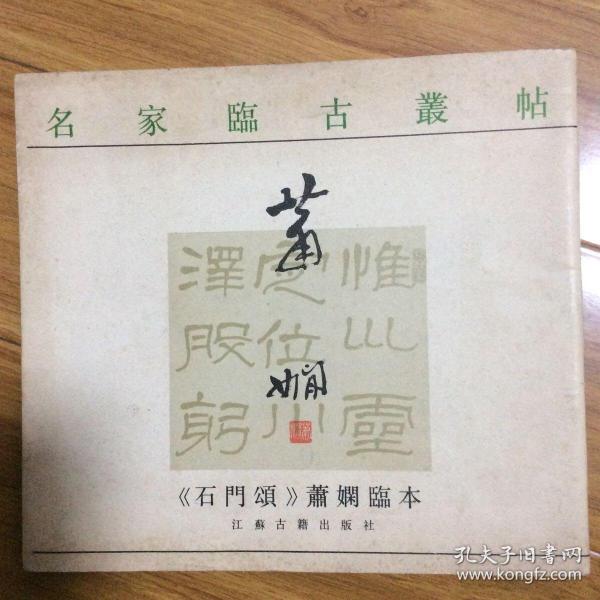 名家臨古叢帖
蕭
嫻
惟靈
定位川
澤股躬
《石門頌》蕭嫻臨本
江蘇古籍出版社
孔夫子旧书网
www.kongfz.com